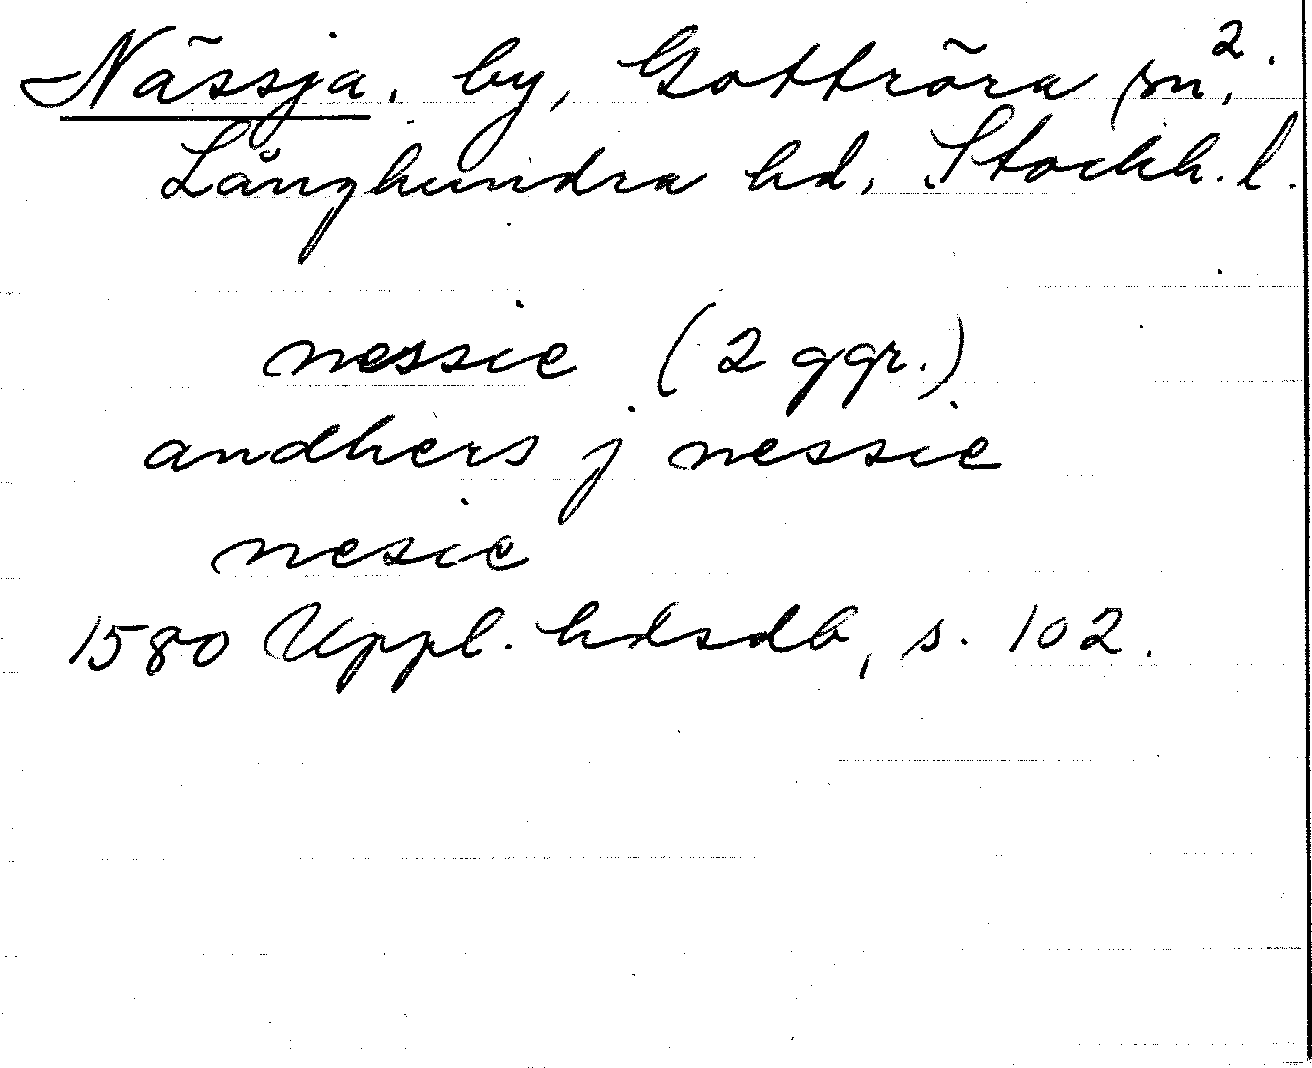 Nässja, by, Gottröra sn,²
Långhundra hd, Stockh. l.
nessie (2 ggr.)
andhers j nessie
nesie
1580 Uppl. hdsdb, s. 102.